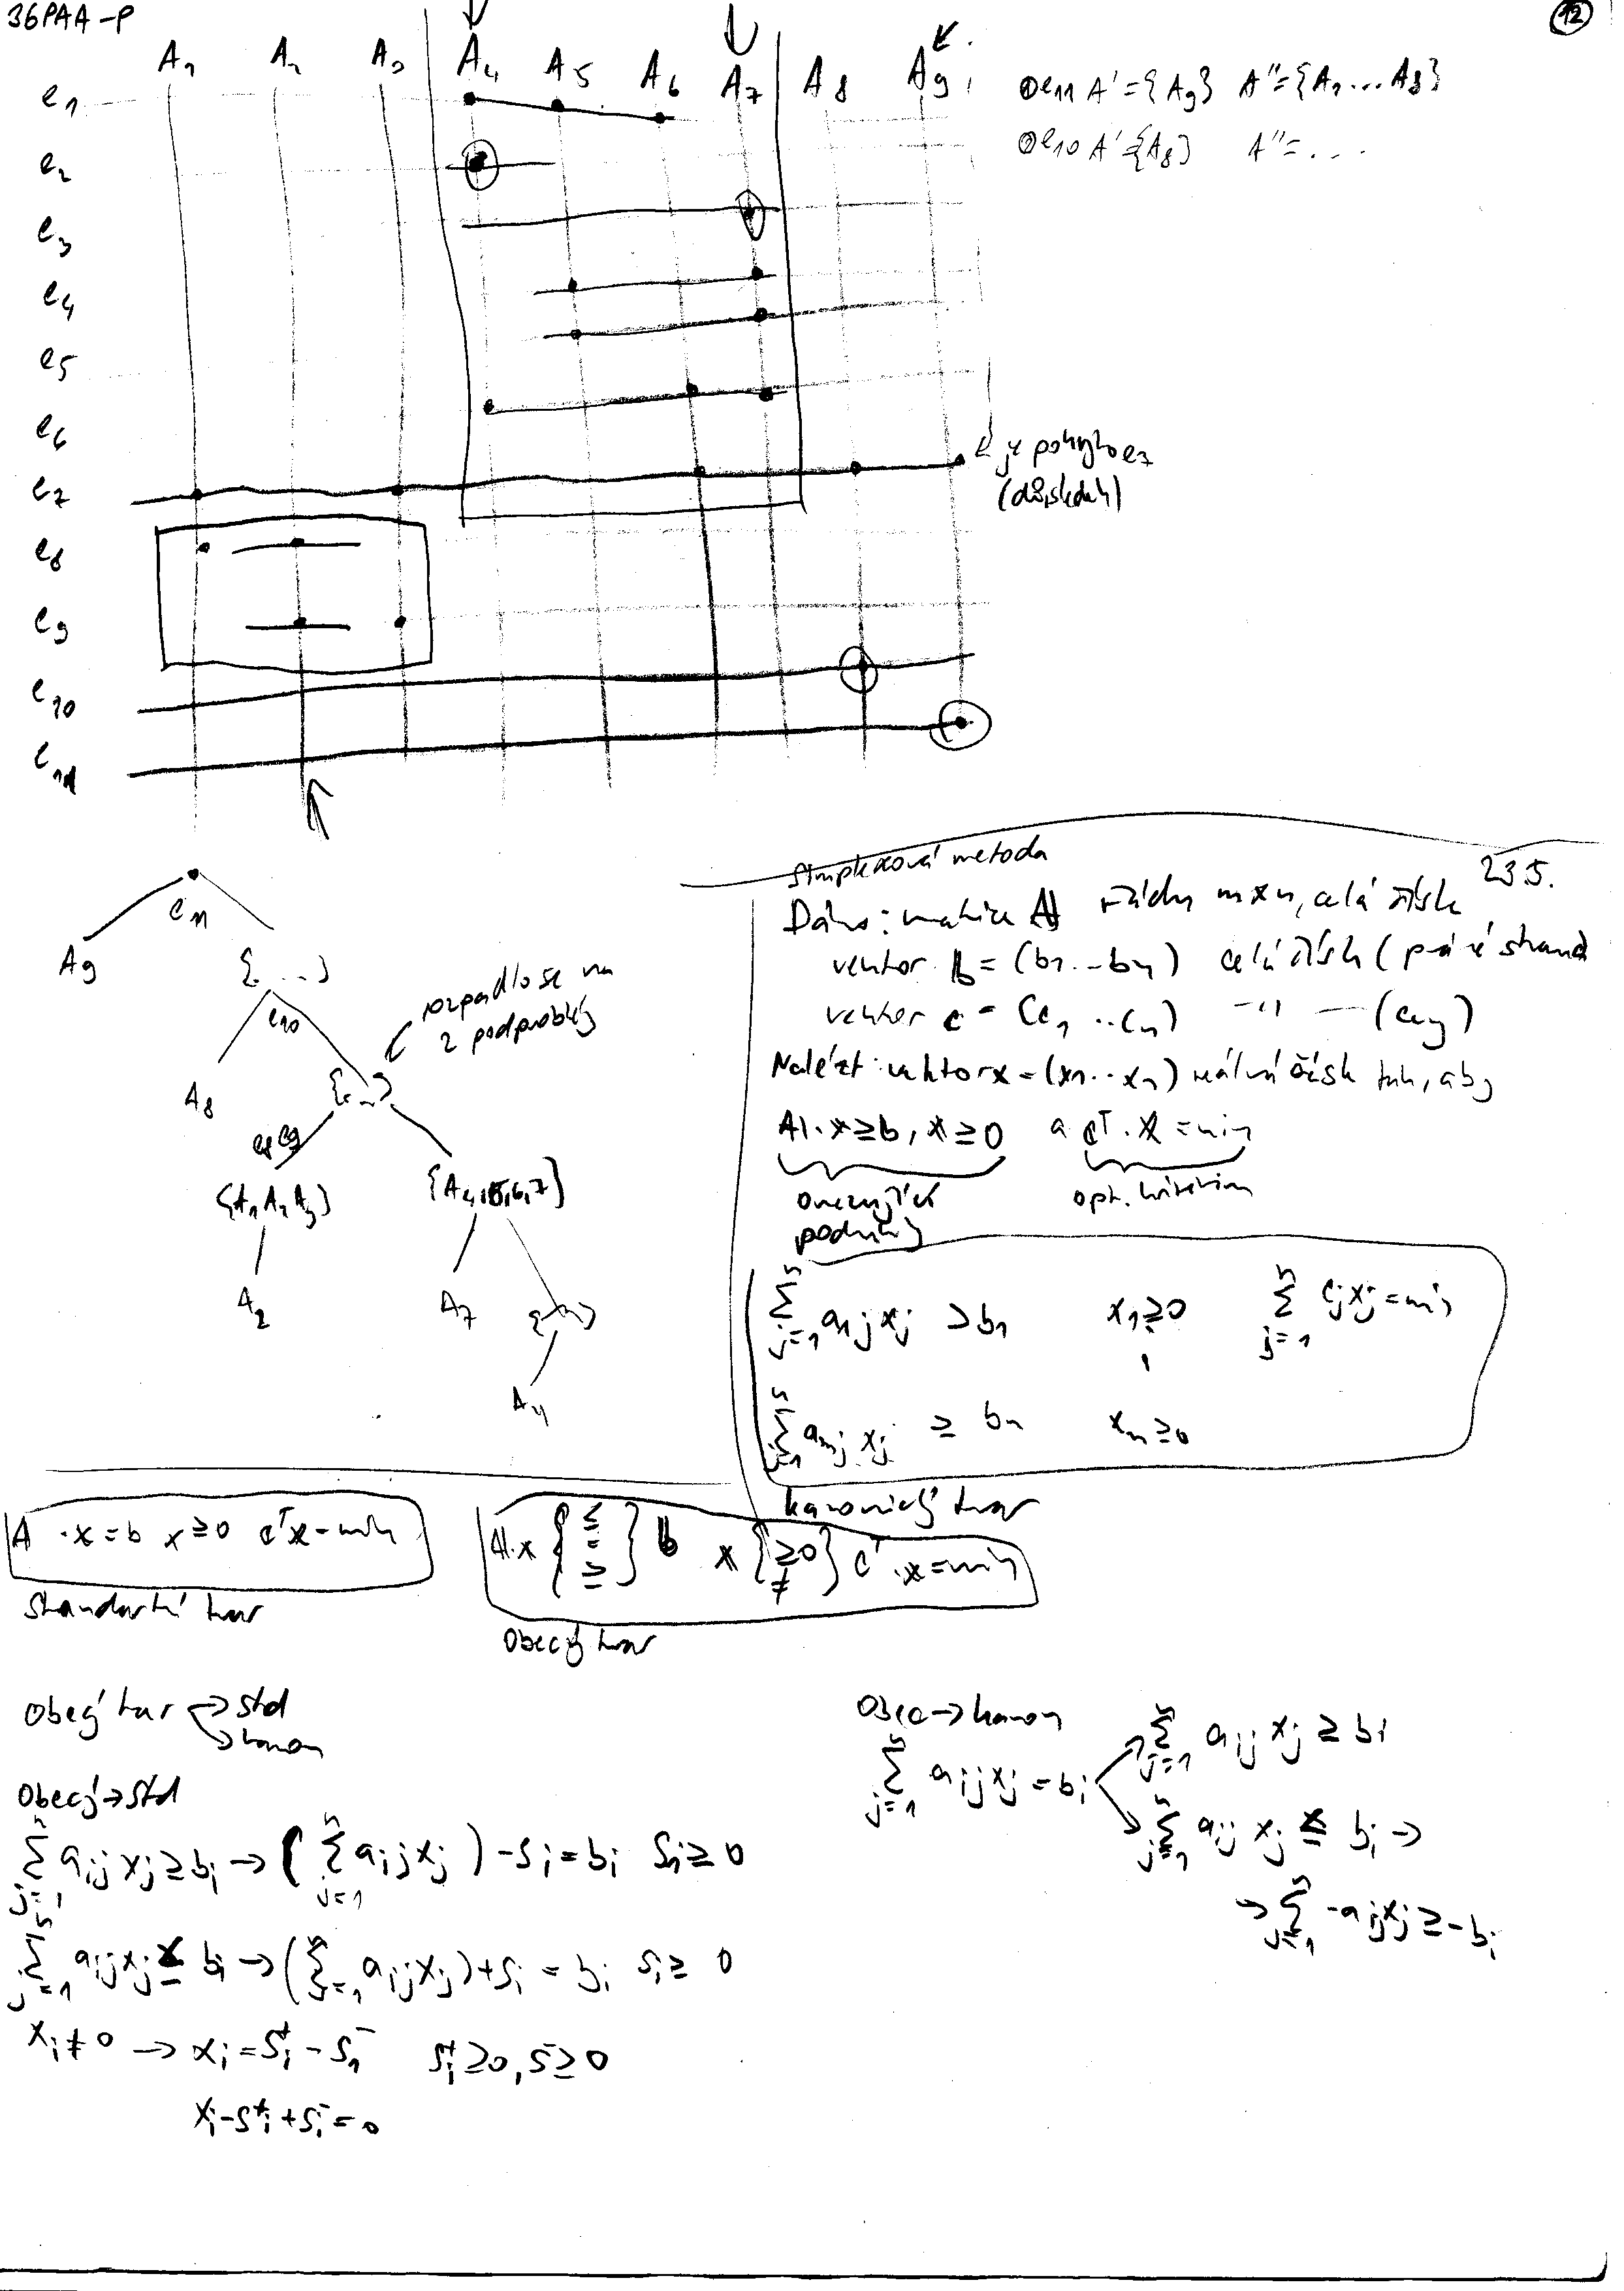 36PAA-P
12
A1 A2 A3 A4 A5 A6 A7 A8 A9
e1
e2
e3
e4
e5
e6
e7
e8
e9
e10
e11
① e11 A' = {A9} A'' = {A1...A8}
② e10 A' = {A8} A'' = ...
je pokryto e7
(důsledek)
e11
A9
{...}
e10
rozpadlo se na
2 podproblémy
A8
{...}
e8e9
{A1A2A3}
{A4,5,6,7}
A2
A7
{...}
A4
Simplexová metoda
23.5.
Dáno: matice A řádu m×n, celá čísla
vektor b = (b1...bn) celá čísla (pravé strana
vektor c = (c1...cn) -"- (ceny)
Nalézt vektor x = (x1...xn) reálná čísla tak, aby
A·x≥b, x≥0 a cᵀ·x = min
omezující
podmínky
opt. kriterium
∑_{j=1}^{n} a1j xj ≥ b1 x1≥0 ∑_{j=1}^{n} cj xj = min
∑_{j=1}^{n} amj xj ≥ bn xn≥0
kanonický tvar
A·x=b x≥0 cᵀx=min
standartní tvar
A·x {≤ = ≥} b x {≥0 ≠} cᵀ·x=min
Obecný tvar
Obecý tvar → std
→ kanon
Obecý→std
∑_{j=1}^{n} aij xj ≥ bi → (∑_{j=1}^{n} aij xj) - si = bi si≥0
∑_{j=1}^{n} aij xj ≤ bi → (∑_{j=1}^{n} aij xj) + si = bi si≥0
xi ≠ 0 → xi = si⁺ - si⁻ si⁺≥0, s⁻≥0
xi - si⁺ + si⁻ = 0
Obec→kanon
∑_{j=1}^{n} aij xj = bi
→ ∑_{j=1}^{n} aij xj ≥ bi
→ ∑_{j=1}^{n} aij xj ≤ bi →
→ ∑_{j=1}^{n} -aij xj ≥ -bi